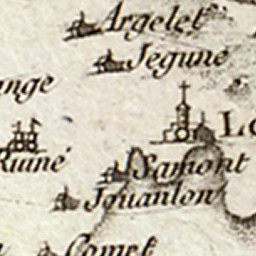 Argelet
Jegune
Ruiné
Samont
Jouanlon
Comet